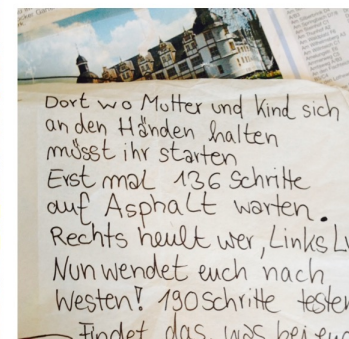 Dort wo Mutter und Kind sich
an den Händen halten
müsst ihr starten
Erst mal 136 Schritte
auf Asphalt warten.
Rechts heult wer, Links
Nun wendet euch nach
Westen! 190 Schritte testen
Findet das, was bei euch